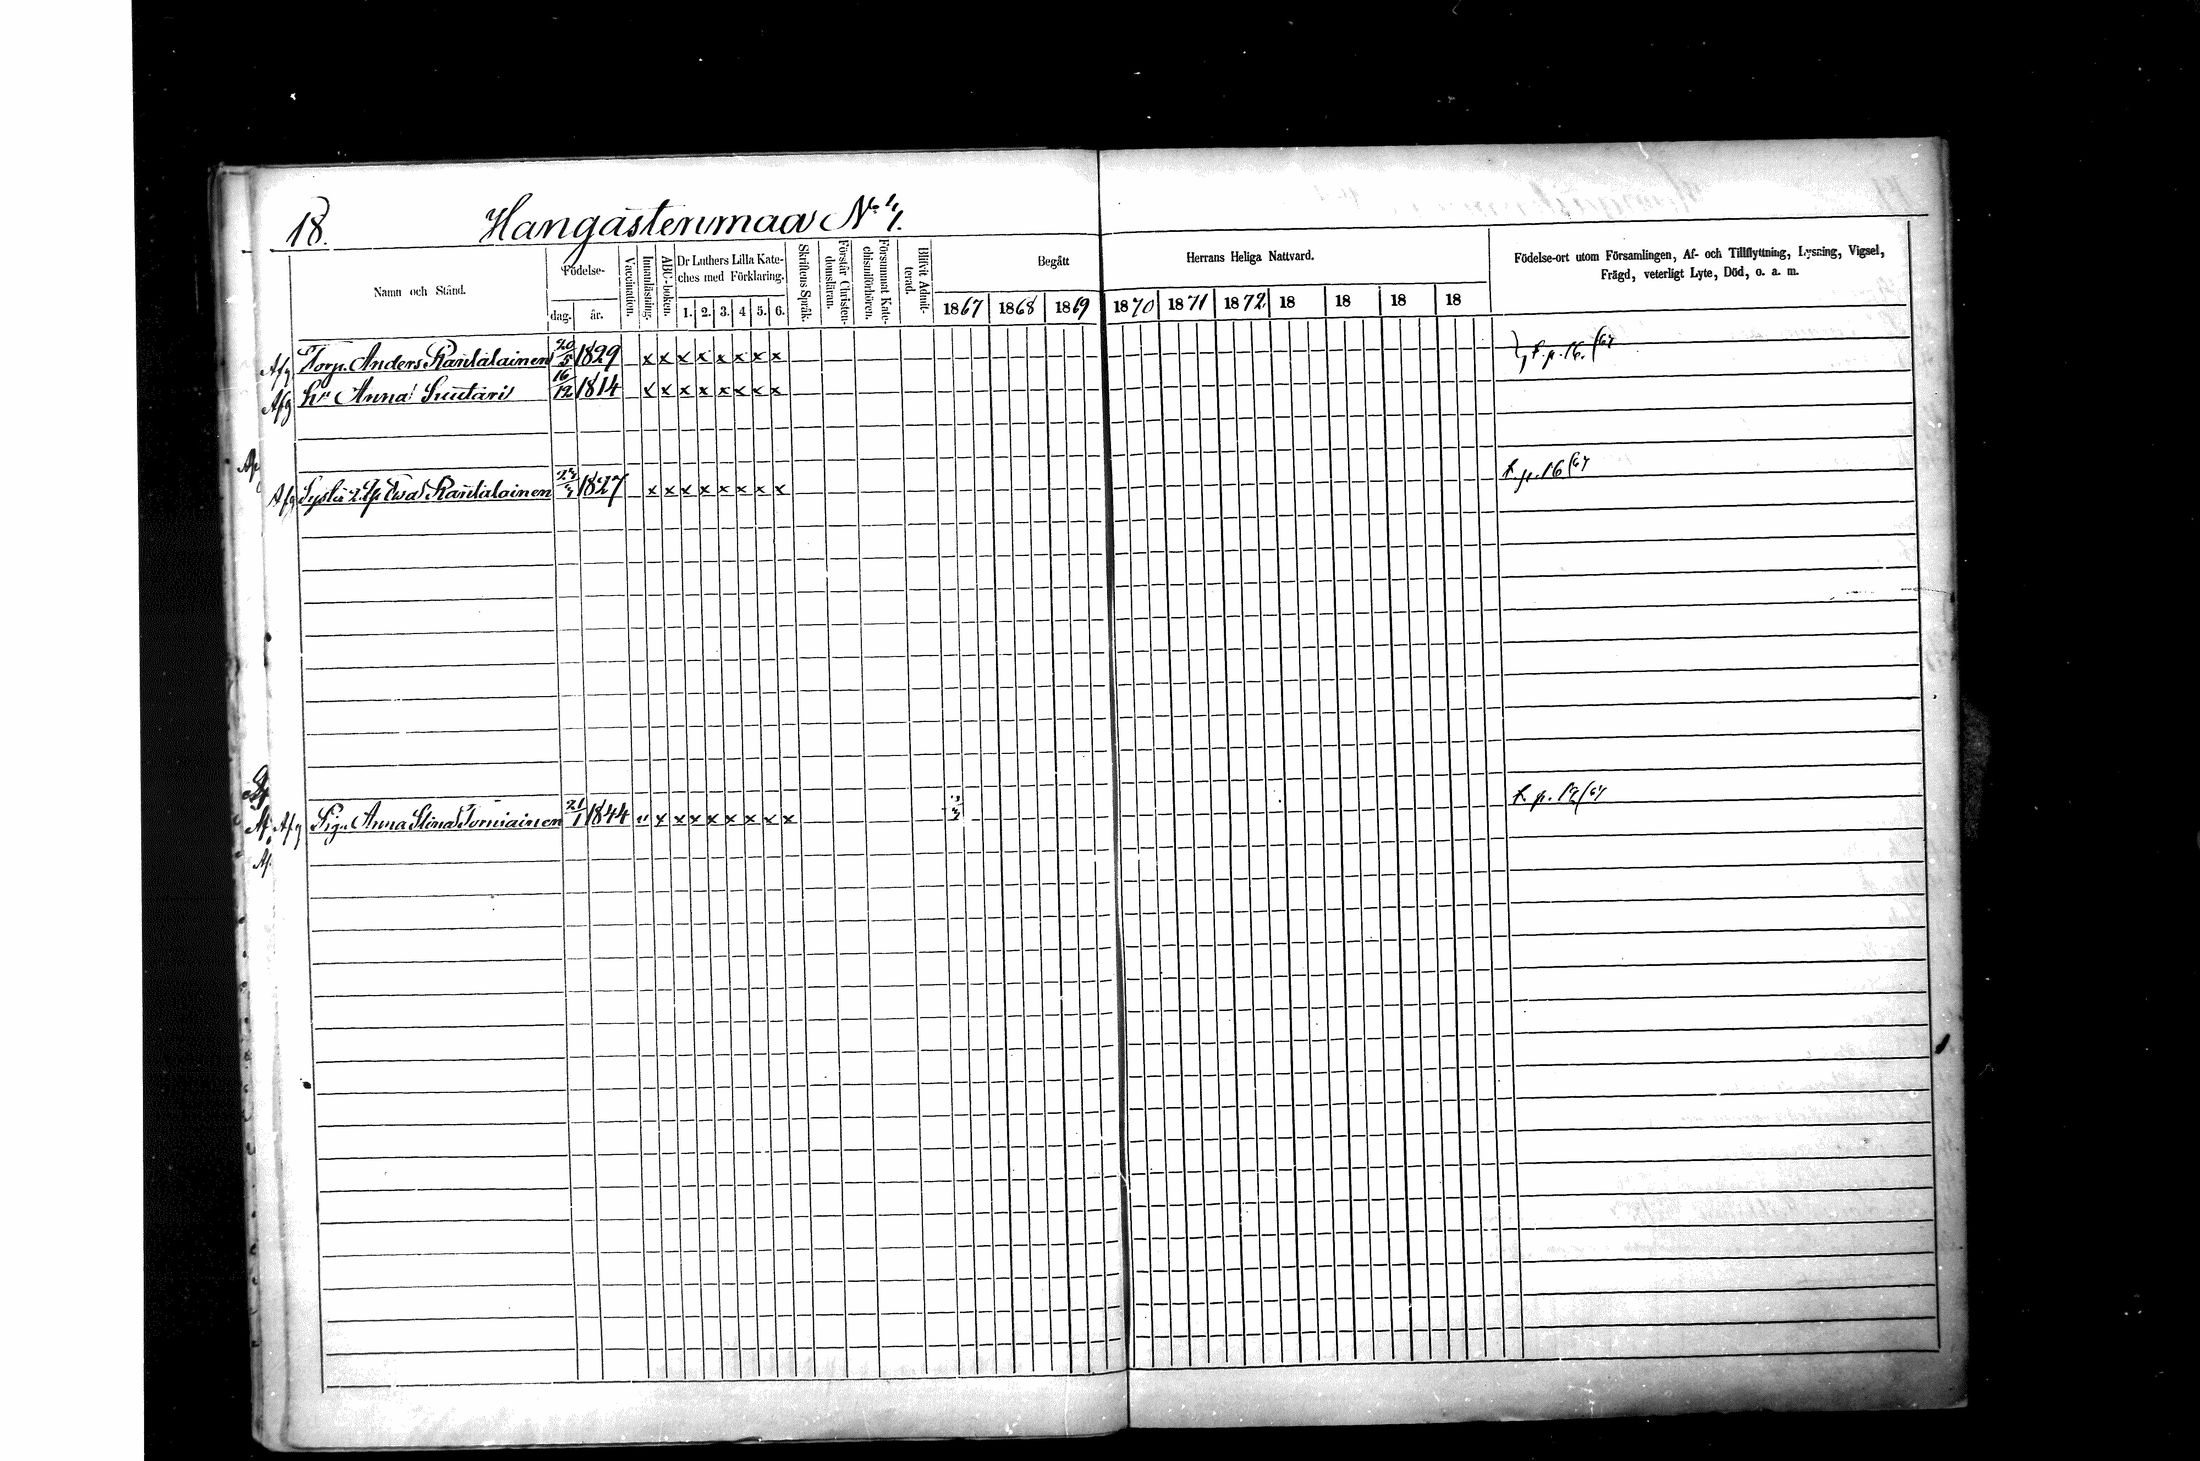 18.
Hangastenmaa No 4.
Namn och Stånd.
Födelse-
dag.
år.
Vaccination.
Innanläsning.
ABC-boken.
Dr Luthers Lilla Kate-
ches med Förklaring.
1. 2. 3. 4 5. 6.
Skriftens Språk.
Förstår Christen-
domsläran.
Försummat Kate-
chismiförhören.
Blifvit Admit-
terad.
Begått Herrans Heliga Nattvard.
1867 1868 1869 1870 1871 1872 18 18 18 18
Födelse-ort utom Församlingen, Af- och Tillflyttning, Lysning, Vigsel,
Frägd, veterligt Lyte, Död, o. a. m.
Afg Torp. Anders Rantalainen 20/5 1829 x x x x x x x x p. 16. /67
Afg hu Anna Suutari 16/12 1814 x x x x x x x x
Afg Ewa Rantalainen 1827 x x x x x x x x p. 16 /67
Afg Pig. Anna Stina Torniainen 21/1 1844 " x x x x x x x x p. 19 /67